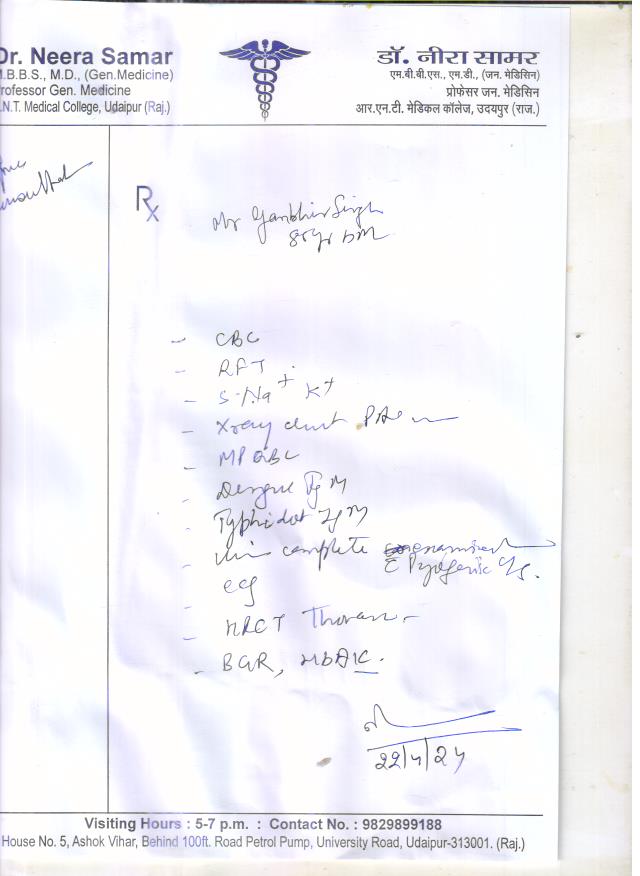 Dr. Neera Samar
M.B.B.S., M.D., (Gen.Medicine)
rofessor Gen. Medicine
.N.T. Medical College, Udaipur (Raj.)
डॉ. नीरा सामर
एम.बी.बी.एस., एम.डी., (जन. मेडिसिन)
प्रोफेसर जन. मेडिसिन
आर.एन.टी. मेडिकल कॉलेज, उदयपुर (राज.)
Rx
Mr Gambhir Singh
DM
- CBC
- RFT
- S. Na+ K+
- Xray chest PA
- MP QBC
- Dengue IgM
- Typhidot IgM
- complete
c Pyogenic C/S.
- ecg
- HRCT Thorax
- BGR, HbA1C.
Visiting Hours : 5-7 p.m. : Contact No. : 9829899188
House No. 5, Ashok Vihar, Behind 100ft. Road Petrol Pump, University Road, Udaipur-313001. (Raj.)